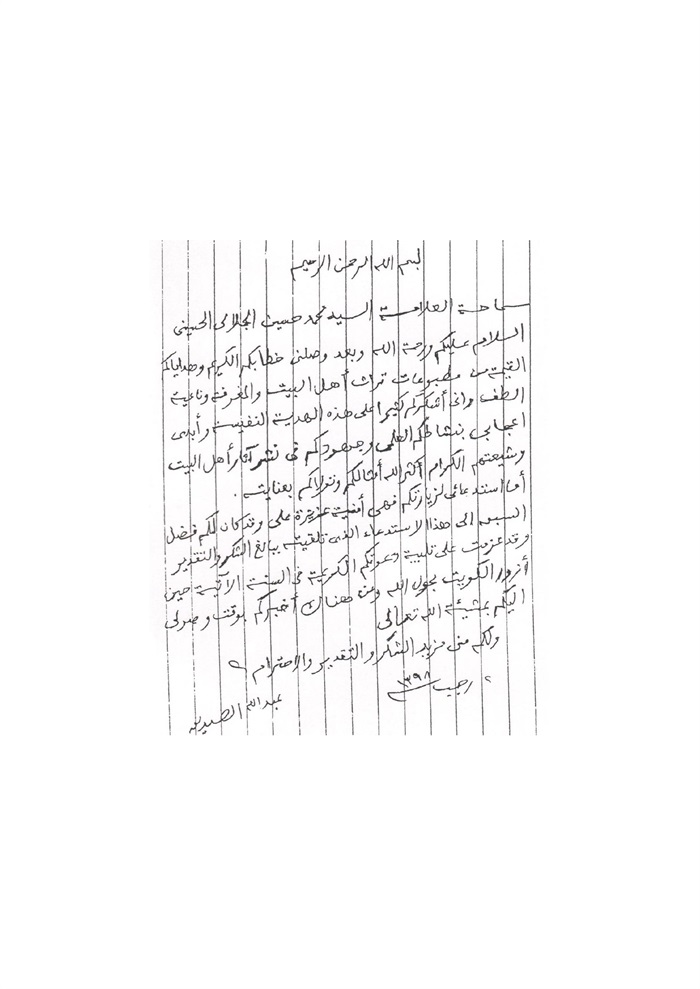 بسم الله الرحمن الرحيم
سماحة العلامة السيد محمد حسين الجلالى الحسينى
السلام عليكم ورحمة الله وبعد وصلنى خطابكم الكريم وهداياكم
القيمة من مطبوعات تراث أهل البيت والمغرفة وناعية
الطف وانى أشكركم كثيرا على هذه الهدية النفيسة وأبدى
اعجابى بنشاطكم العلمى وجهودكم فى نشر آثار أهل البيت
وشيعتهم الكرام أكثر الله أمثالكم وتولاكم بعنايته .
أما استدعائى لزيارتكم فهى أمنية عزيزة على وقد كان لكم فضل
السبق الى هذا الاستدعاء الذى تلقيته ببالغ الشكر والتقدير
وقد عزمت على تلبية دعوتكم الكريمة فى السنة الآتية حين
أزور الكويت بحول الله ومن هناك أخبركم بوقت وصولى
اليكم بمشيئة الله تعالى
ولكم منى مزيد الشكر والتقدير والاحترام
رجب ١٣٩٨
عبد الله الصديق